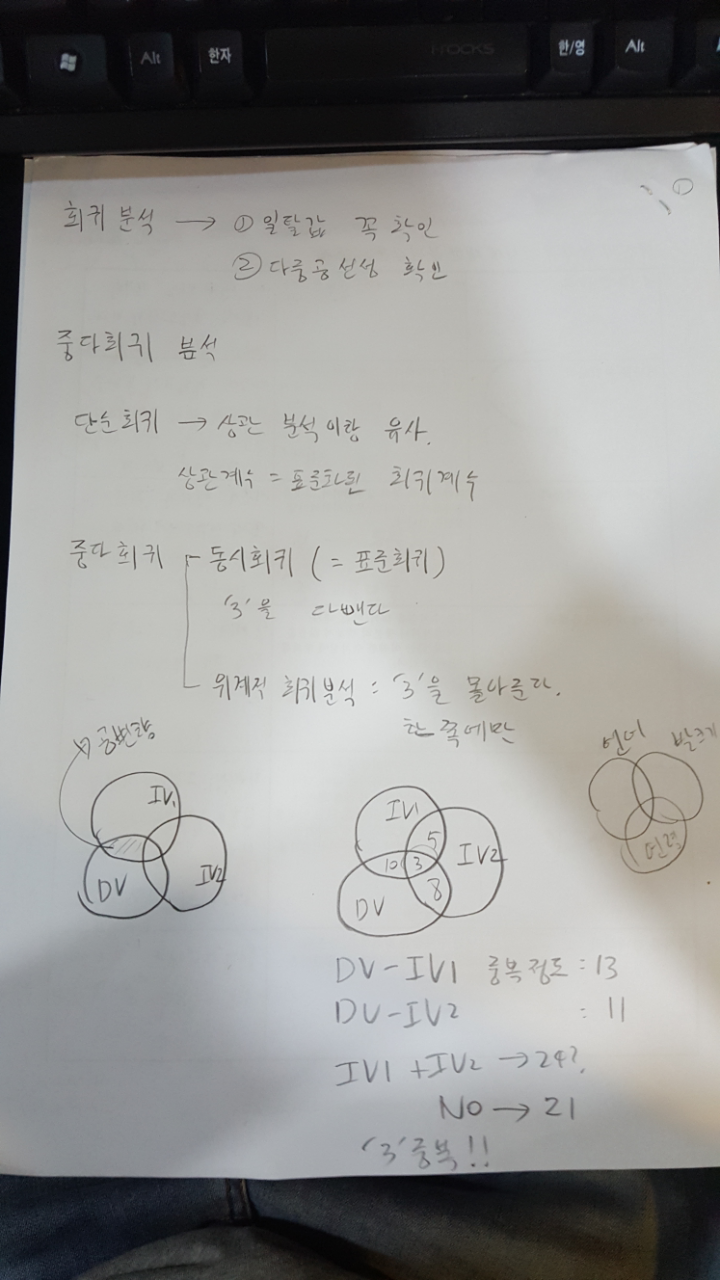 Alt
한자
한/영
Alt
①
회귀 분석 → ① 일탈값 꼭 확인
② 다중공선성 확인
중다회귀 분석
단순회귀 → 상관 분석이랑 유사.
상관계수 = 표준화된 회귀계수
중다회귀 - 동시회귀 (= 표준회귀)
'3'을 다뺀다
위계적 회귀분석 = '3'을 몰아준다.
한 쪽에만
공변량
IV1
DV
IV2
IV1
5
IV2
10
3
8
DV
언어
발크기
연령
DV-IV1 중복정도 : 13
DV-IV2 : 11
IV1 + IV2 → 24?.
NO → 21
'3'중복!!